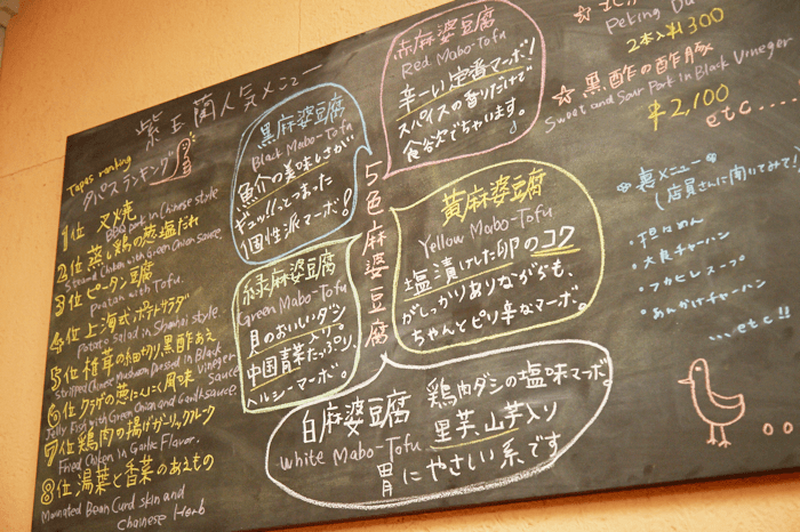 紫玉蘭人気メニュー
Tapas ranking
タパスランキング
1位 叉焼
BBQ pork in Chinese style
2位 蒸し鶏の葱塩だれ
Steamd Chicken with Green Onion Sauce.
3位 ピータン豆腐
Pyatan with Tofu.
4位 上海式ポテトサラダ
Potato Salad in Shanhai style.
5位 椎茸の細切り、黒酢あえ
Stripped Chinese Mushroom Dressed in Black Vineger Sauce
6位 クラゲの葱にんにく風味
Jelly Fish with Green Onion and Garlic sauce.
7位 鶏肉の揚げガーリックルーク
Fried Chiken in Garlic Flavor.
8位 湯葉と香菜のあえもの
Marinated Bean Curd skin and
Chainese Herb
5色麻婆豆腐
赤麻婆豆腐
Red Mabo-Tofu
辛ーい定番マーボ!
スパイスの香りだけで
食谷欠でちゃいます。
黒麻婆豆腐
Black Mabo-Tofu
魚介の美味しさが、
ギュッ!!っとつまった
個性派マーボ!
黄麻婆豆腐
Yellow Mabo-Tofu
塩漬けした卵のコク
がしっかりありながらも、
ちゃんとピリ辛なマーボ。
緑麻婆豆腐
Green Mabo-Tofu
貝のおいしいダシ
中国青菜たっぷり、入り。
ヘルシーマーボ。
白麻婆豆腐 鶏肉ダシの塩味マーボ。
White Mabo-Tofu 里芋、山芋入り
胃にやさしい系です
Peking Du
2本入¥1300
☆ 黒酢の酢豚
Sweet and Sour Pork in Black Vineger
¥2,100
etc....
裏メニュー
(店員さんに聞いてみて!)
・担々めん
・大良チャーハン
・フカヒレスープ
・あんかけチャーハン
...etc!!